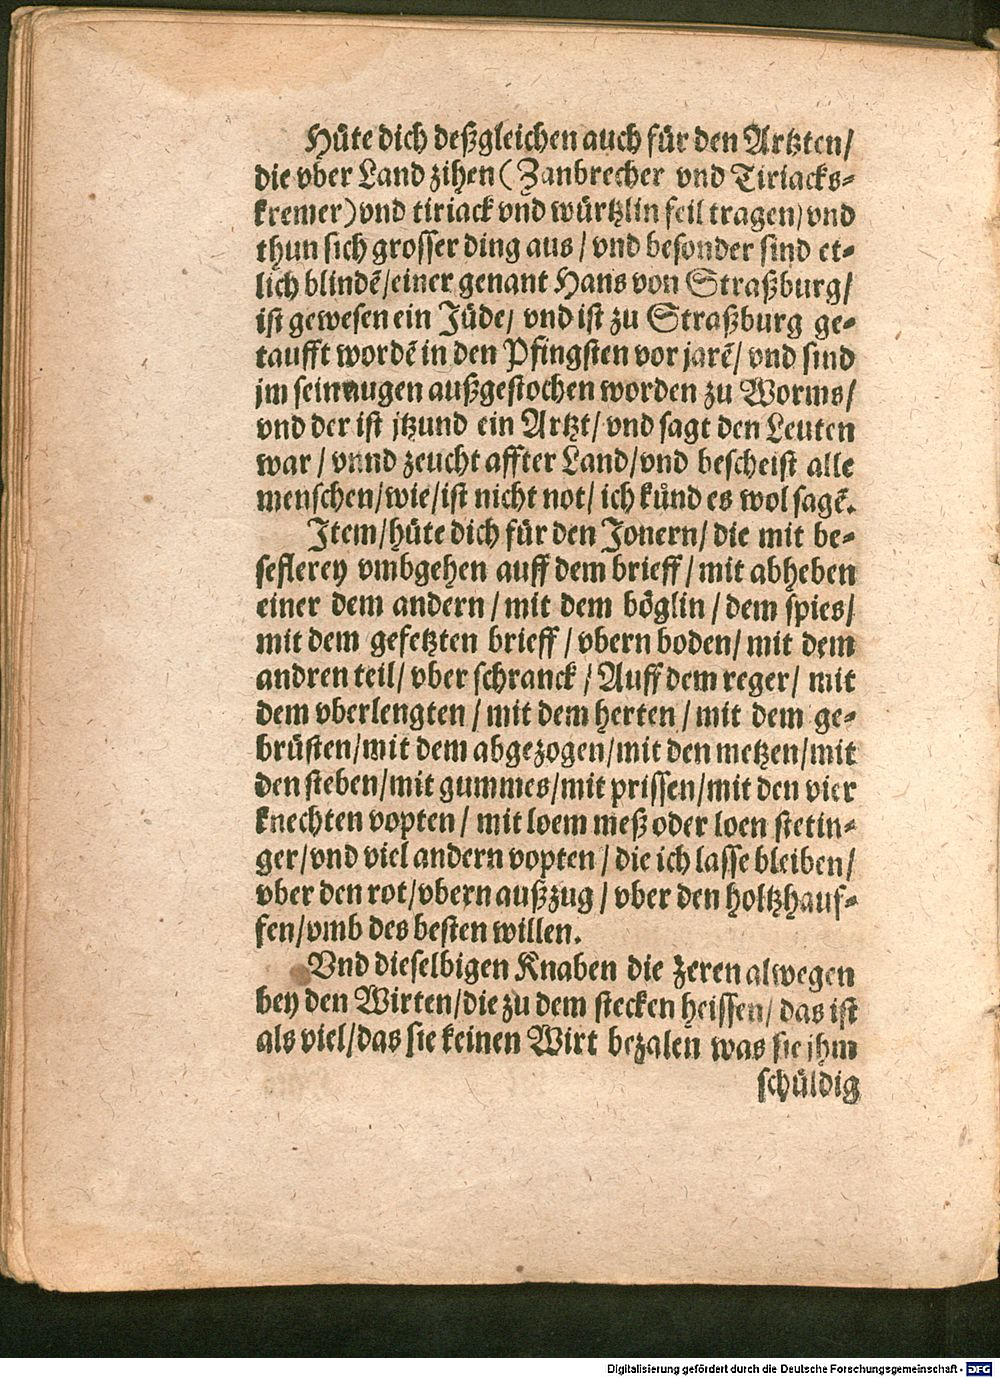 Hüte dich deßgleichen auch für den Artzten/
die vber Land zihen (Zanbrecher vnd Tiriacks-
kremer) vnd tiriack vnd würtzlin feil tragen/ vnd
thun sich grosser ding aus/ vnd besonder sind et-
lich blindẽ/ einer genant Hans von Straßburg/
ist gewesen ein Jüde/ vnd ist zu Straßburg ge-
taufft wordẽ in den Pfingsten vor jarẽ/ vnd sind
jm sein augen außgestochen worden zu Worms/
vnd der ist jtzund ein Artzt/ vnd sagt den Leuten
war/ vnnd zeucht affter Land/ vnd bescheist alle
menschen/ wie/ ist nicht not/ ich künd es wol sagẽ.
Item/ hüte dich für den Jonern/ die mit be-
seflerey vmbgehen auff dem brieff/ mit abheben
einer dem andern/ mit dem böglin/ dem spies/
mit dem gefetzten brieff/ vbern boden/ mit dem
andren teil/ vber schranck/ Auff dem reger/ mit
dem vberlengten/ mit dem herten/ mit dem ge-
brüsten/ mit dem abgezogen/ mit den metzen/ mit
den steben/ mit gummes/ mit prissen/ mit den vier
knechten vopten/ mit loem meß oder loen stetin-
ger/ vnd viel andern vopten/ die ich lasse bleiben/
vber den rot/ vbern außzug/ vber den holtzhauf-
fen/ vmb des besten willen.
Vnd dieselbigen Knaben die zeren alwegen
bey den Wirten/ die zu dem stecken heissen/ das ist
als viel/ das sie keinen Wirt bezalen was sie jhm
schüldig
Digitalisierung gefördert durch die Deutsche Forschungsgemeinschaft - DFG